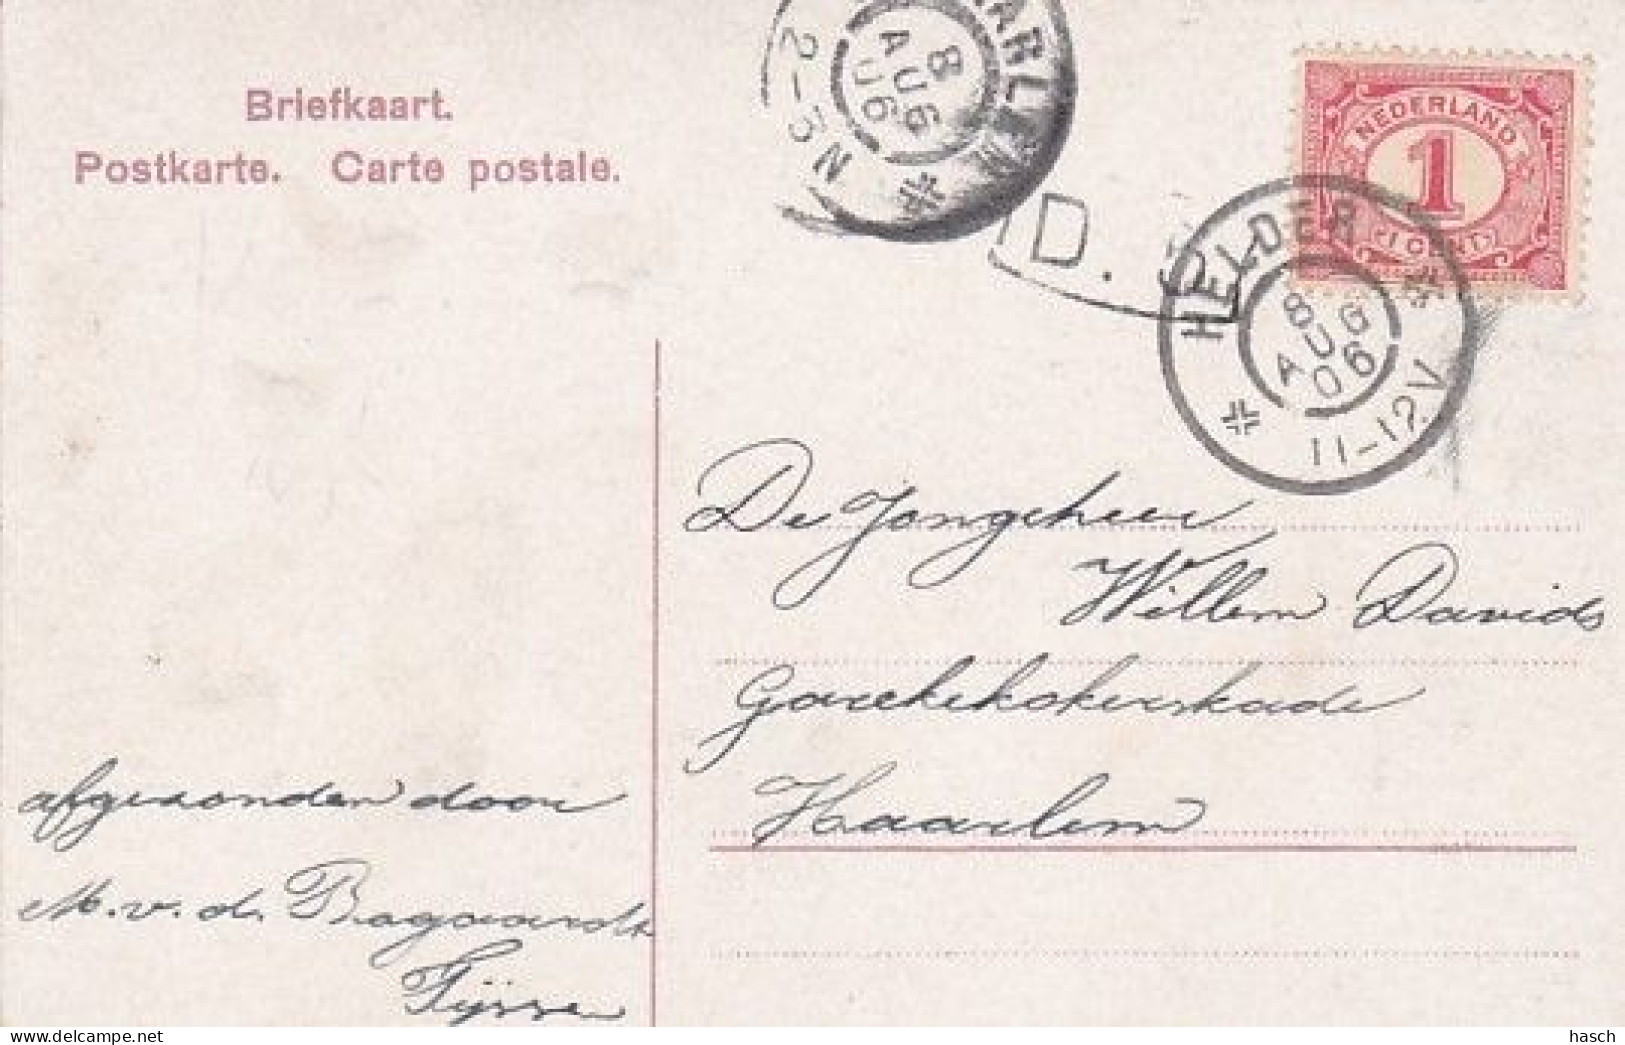 Briefkaart.
Postkarte. Carte postale.
HAARLEM
8
AUG
06
2-3N
D.
NEDERLAND
1
1 CENT
HELDER
8
AUG
06
11-12V
De Jongeheer
Willem Davids
Haarlem
afgezonden door
M. v. d. Bogaardt
delcampe.net
hasch